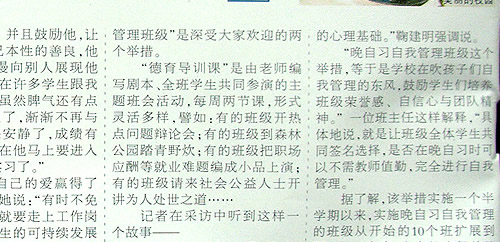 并且鼓励他,让
己本性的善良,他
慢向别人展现他
在许多学生跟我
虽然脾气还有点
了,渐渐不再与
安静了,成绩有
在他马上要进入
实习了。”
自己的爱赢得了
她说:“有时不免
就要走上工作岗
生的可持续发展
管理班级”是深受大家欢迎的两
个举措。
“德育导训课”是由老师编
写剧本,全班学生共同参演的主
题班会活动,每周两节课,形式
灵活多样,譬如:有的班级开热
点问题辩论会;有的班级到森林
公园踏青野炊;有的班级把职场
应酬等就业难题编成小品上演;
有的班级请来社会公益人士开
讲为人处世之道……
记者在采访中听到这样一
个故事——
的心理基础。”鞠建明强调说。
“晚自习自我管理班级这个
举措,等于是学校在吹孩子们自
我管理的东风,鼓励学生们培养
班级荣誉感、自信心与团队精
神。”一位班主任这样解释,“具
体地说,就是让班级全体学生共
同签名选择,是否在晚自习时可
以不需教师值勤,完全进行自我
管理。”
据了解,该举措实施一个半
学期以来,实施晚自习自我管理
的班级从开始的10个班扩展到